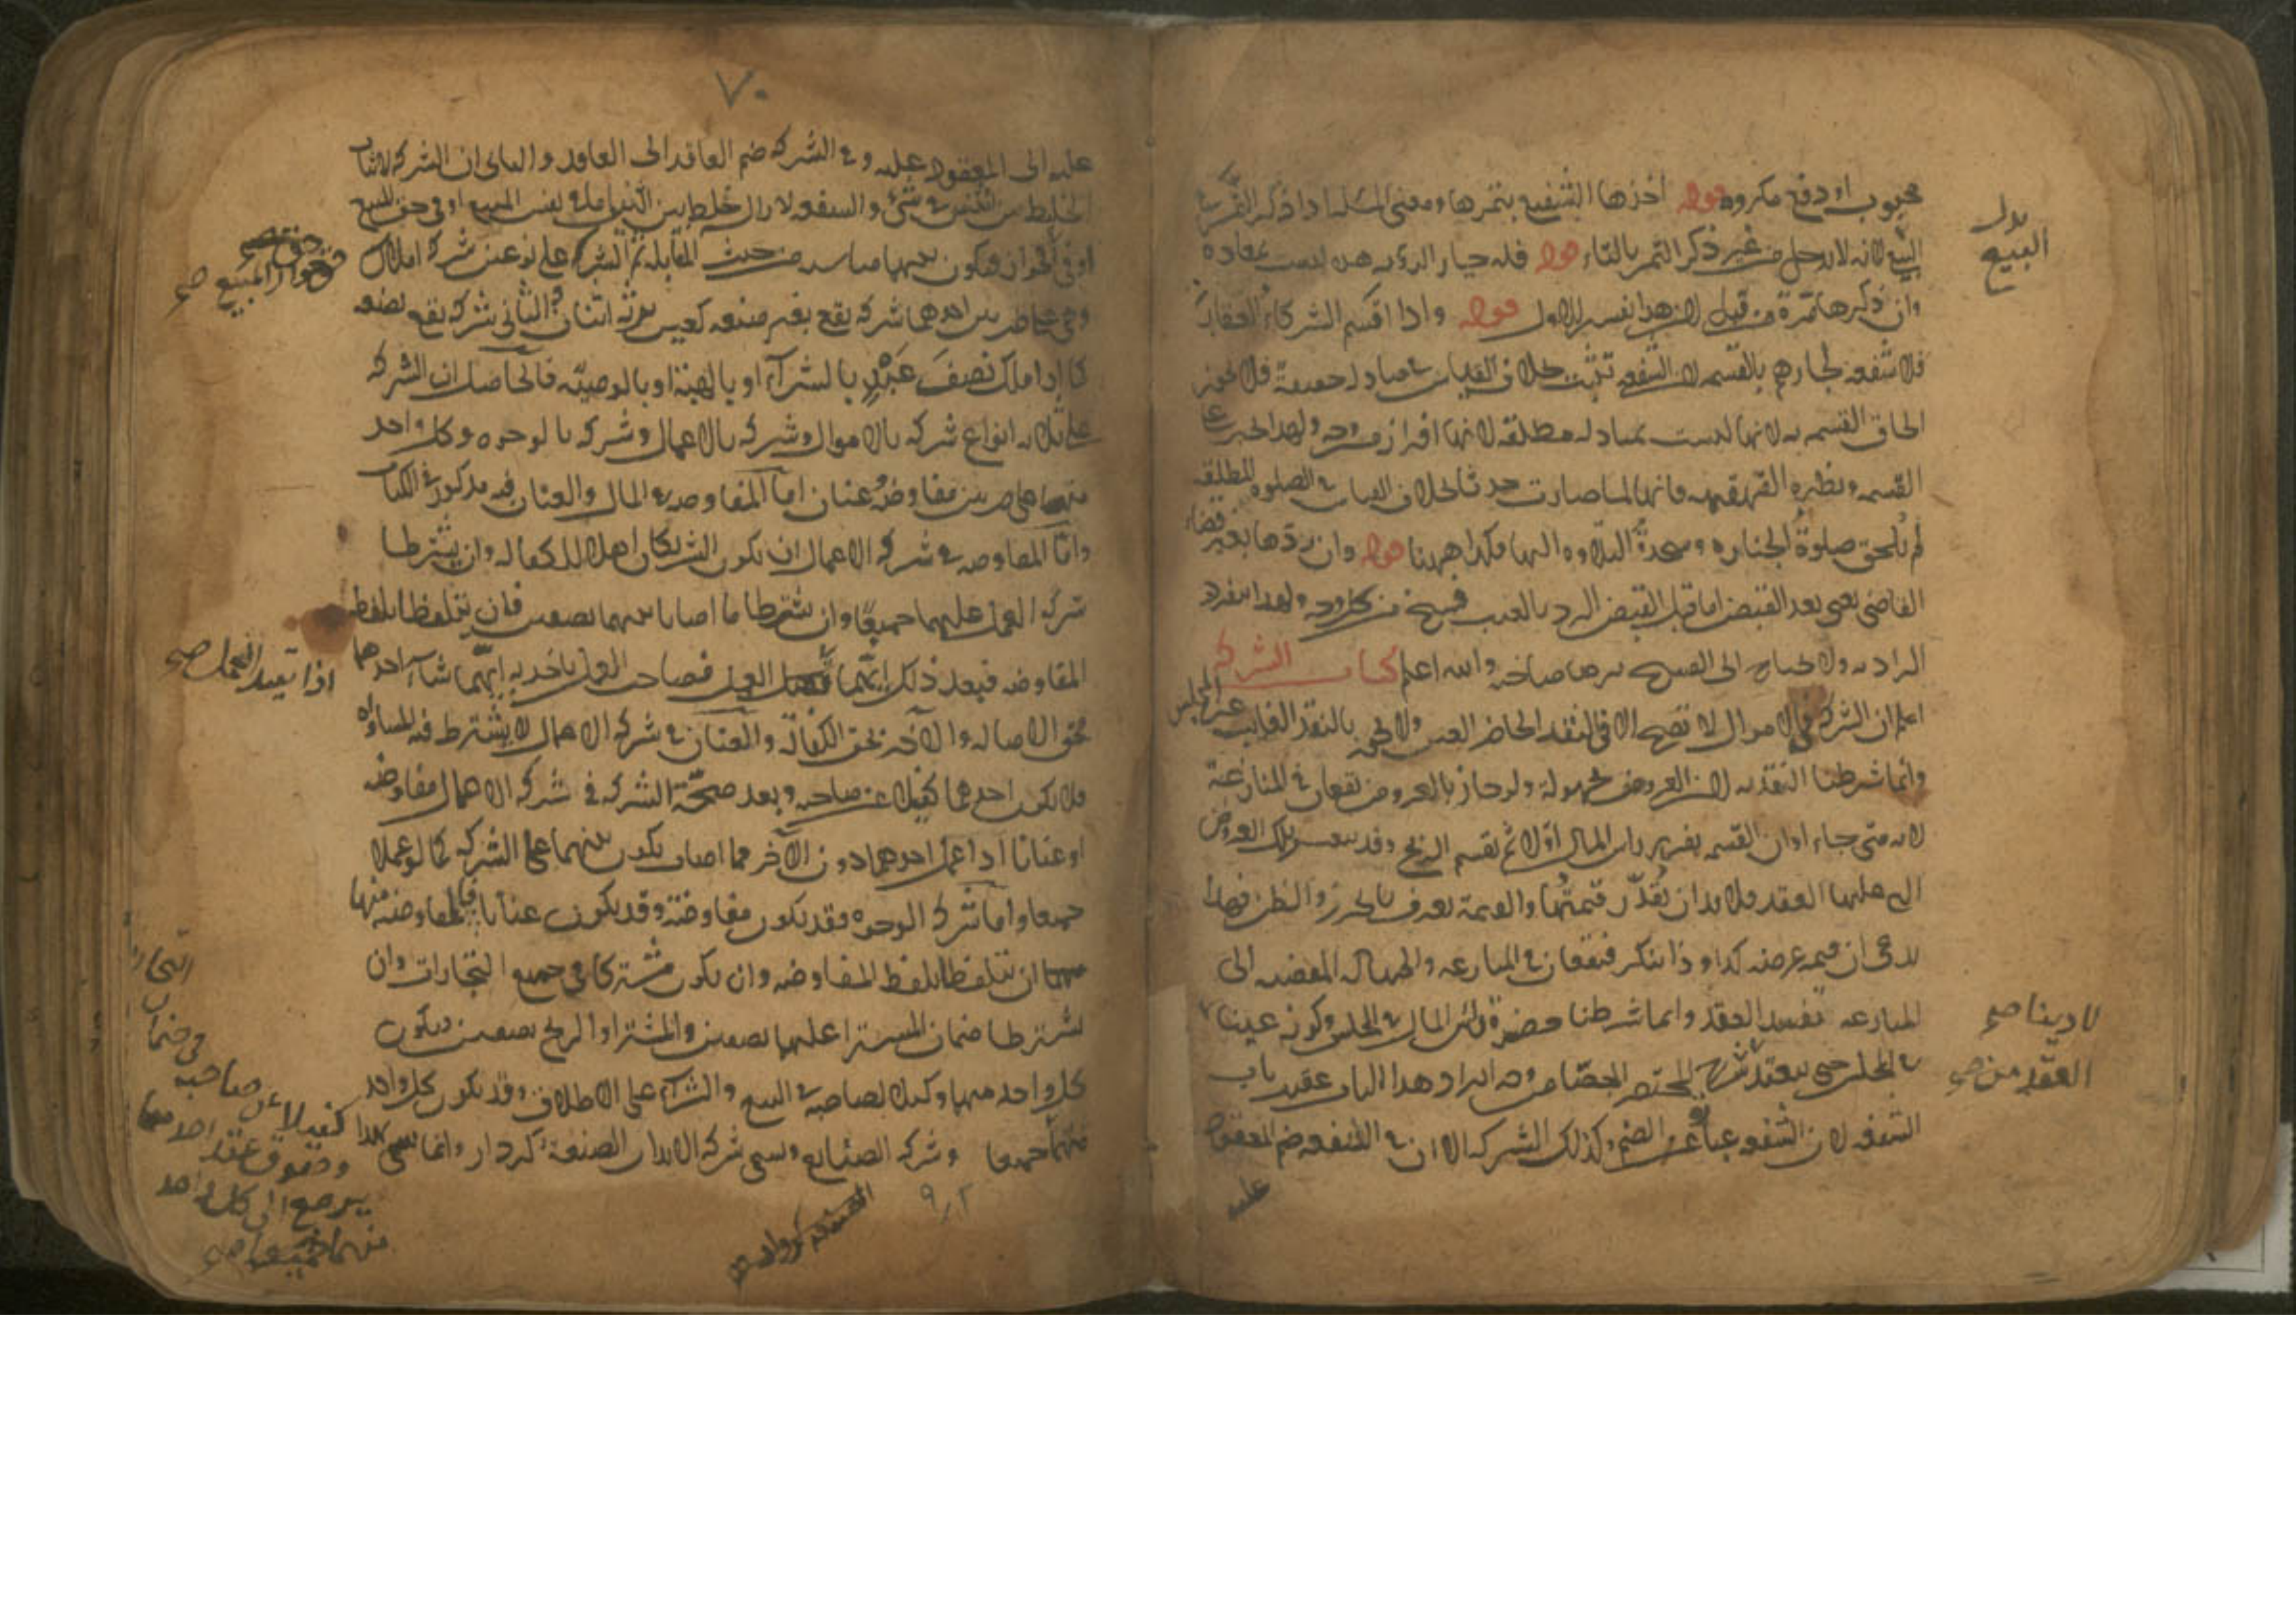 محبوب او دفع مكروه قوله اخذها الشفيع بثمرها ومعنى المسئله اذا ذكر الثمر في
البيع لانه لا يدخل من غير ذكر الثمر بالثاء قوله فله خيار الرؤيه هذه ليست بمعاده
وان ذكرها مرة من قبل لان هذا تفسير للاول قوله واذا اقتسم الشركاء العقار
فلا شفعه لجارهم بالقسمه لان الشفعه تثبت بخلاف القياس في مبادله حقيقة فلا يجوز
الحاق القسمه به لانها ليست بمبادله مطلقه لانها افراز من وجه ولهذا الجبر على
القسمه ونظيره القهقهه فانها لما صارت حدثا بخلاف القياس في الصلوه المطلقه
لم تلحق صلوة الجنازه وسجدة التلاوه اليها فكذا ههنا قوله وان ردها بغير قضاء
القاضى يعنى بعد القبض اما قبل القبض الرد بالعيب فسخ من كل وجه ولهذا ينفرد
الراد به ولا يحتاج الى الفسخ برضا صاحبه والله اعلم كتاب الشركه
اعلم ان الشركه في الاموال لا تصح الا في النقد الحاضر العين ولا بالنقد الغايب عن المجلس
وانما شرطنا النقديه لان العروض مجهولة ولو جاز بالعروض تقعان في المنازعة
لانه متى جاء اوان القسمه يفرز راس المال اولا ثم يقسم الربح وقد تلك العروض
التي عليها العقد فلا بد ان تقدر قيمتها والقيمة تعرف بالحرز والظن فهذا
يدعى ان قيمه عرضه كذا وذا ينكر فتقعان في المنازعه والجهاله المفضيه الى
المنازعه تفسد العقد وانما شرطنا حضرة راس المال في المجلس وكونه عينا
في المجلس حتى ينعقد شرح المختصر الجصاص وجه ايراد هذا الباب عقيب باب
الشفعه لان الشفعه عبارة عن الضم وكذلك الشركه الا ان في الشفعه ضم المعقود
عليه
بدل
البيع
لا دينا صح
العقد من صح
٧٠
عليه الى المعقود عليه وفي الشركه ضم العاقد الى العاقد والثانى ان الشركه لاثبات
الخليط بين اثنين في شئ والشفعه لازاله خلط بين اثنين اما في نفس المبيع او في حق المبيع
او في الجوار فيكون بينهما مناسبه من حيث المقابله ثم الشركه على نوعين شركه املاك
وهى على ضربين احدهما شركه يقع بغير صنعه كعين يرثه اثنان والثانى شركه يقع بصنعه
كما اذا ملك نصف عبد بالشراء او بالهبة او بالوصيه فالحاصل ان الشركه
على ثلاثه انواع شركه بالاموال وشركه بالاعمال وشركه بالوجوه وكل واحد
منهما على ضربين مفاوضه وعنان اما المفاوضه في المال والعنان فيه مذكور في الكتاب
واما المفاوضه في شركه الاعمال ان يكون الشريكان اهلا للكفاله وان يشترطا
شركه العمل عليهما جميعا وان يشترطا ما اصابا بينهما نصفين فان يتلفظا بلفظ
المفاوضه فبعد ذلك ايهما العمل فصاحب العمل ياخذ به ايهما شاء احدهما
بحق الاصاله والآخر بحق الكفاله والعنان في شركه الاعمال لا يشترط فيه المساواه
فلا يكون احدهما كفيلا عن صاحبه وبعد صحة الشركه في شركه الاعمال مفاوضه
او عنانا اذا عمل احدهما دون الآخر مما اصاب يكون بينهما على الشركه كما لو عملا
جميعا واما شركه الوجوه فقد يكون مفاوضة وقد يكون عنانا فالمفاوضه منها
ان يتلفظا بلفظ المفاوضه وان يكون مشتركا في جميع التجارات وان
يشترطا ضمان المشترا عليهما نصفين والمشترا والربح نصفين ويكون
كل واحد منهما وكيلا لصاحبه في البيع والشراء على الاطلاق وقد يكون كل واحد
منهما جميعا وشركه الصنايع وتسمى شركه الابدان الصنعة كردار وانما سمى بهذا
حق
جوار المبيع صح
اذا تقبل العمل صح
التجارة
في ضمان
كفيلا عن صاحبه
وحقوق عقد احدهما
يرجع الى كل واحد
منهما جميعا صح
٩/٢